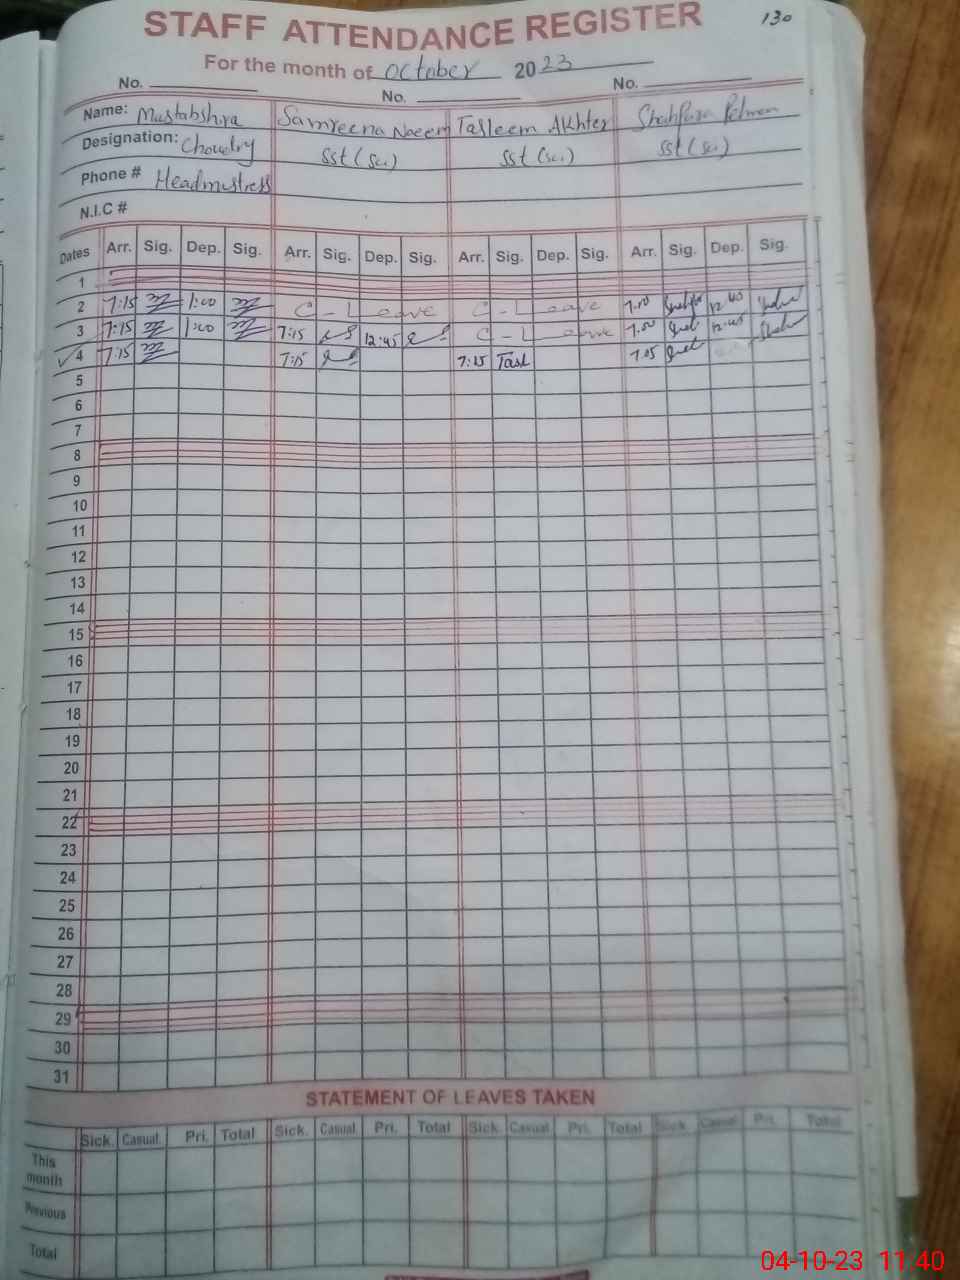 130
STAFF ATTENDANCE REGISTER
For the month of October 2023
No. No. No.
Name: Mustabshira Samreena Naeem Tasleem Akhter
Designation: Choudry SSt (Sci) SSt (Sci) SSt (Sci)
Phone # Headmistress
N.I.C #
Dates Arr. Sig. Dep. Sig. Arr. Sig. Dep. Sig. Arr. Sig. Dep. Sig. Arr. Sig. Dep. Sig.
1
2 7:15 1:00 C - Leave C - Leave 7.00 12:40
3 7:15 1:00 7:15 12:45 C - Leave 7.00 12:45
4 7:15 7:15 7:15 Tasl 7.05
5
6
7
8
9
10
11
12
13
14
15
16
17
18
19
20
21
22
23
24
25
26
27
28
29
30
31
STATEMENT OF LEAVES TAKEN
Sick. Casual. Pri. Total Sick. Casual. Pri. Total Sick. Casual. Pri. Total Sick. Casual. Pri. Total
This month
Previous
Total
04-10-23 11:40